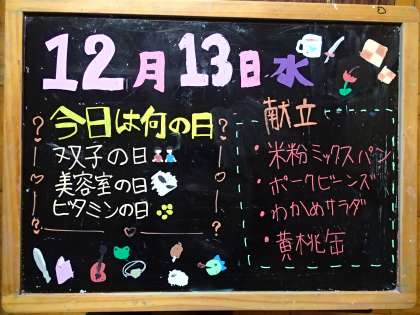 12月13日水
?今日は何の日?
双子の日
美容室の日
ビタミンの日
献立
・米粉ミックスパン
・ポークビーンズ
・わかめサラダ
・黄桃缶